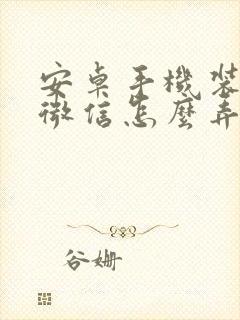 安桌手機裝
微信怎麼弄
谷姗